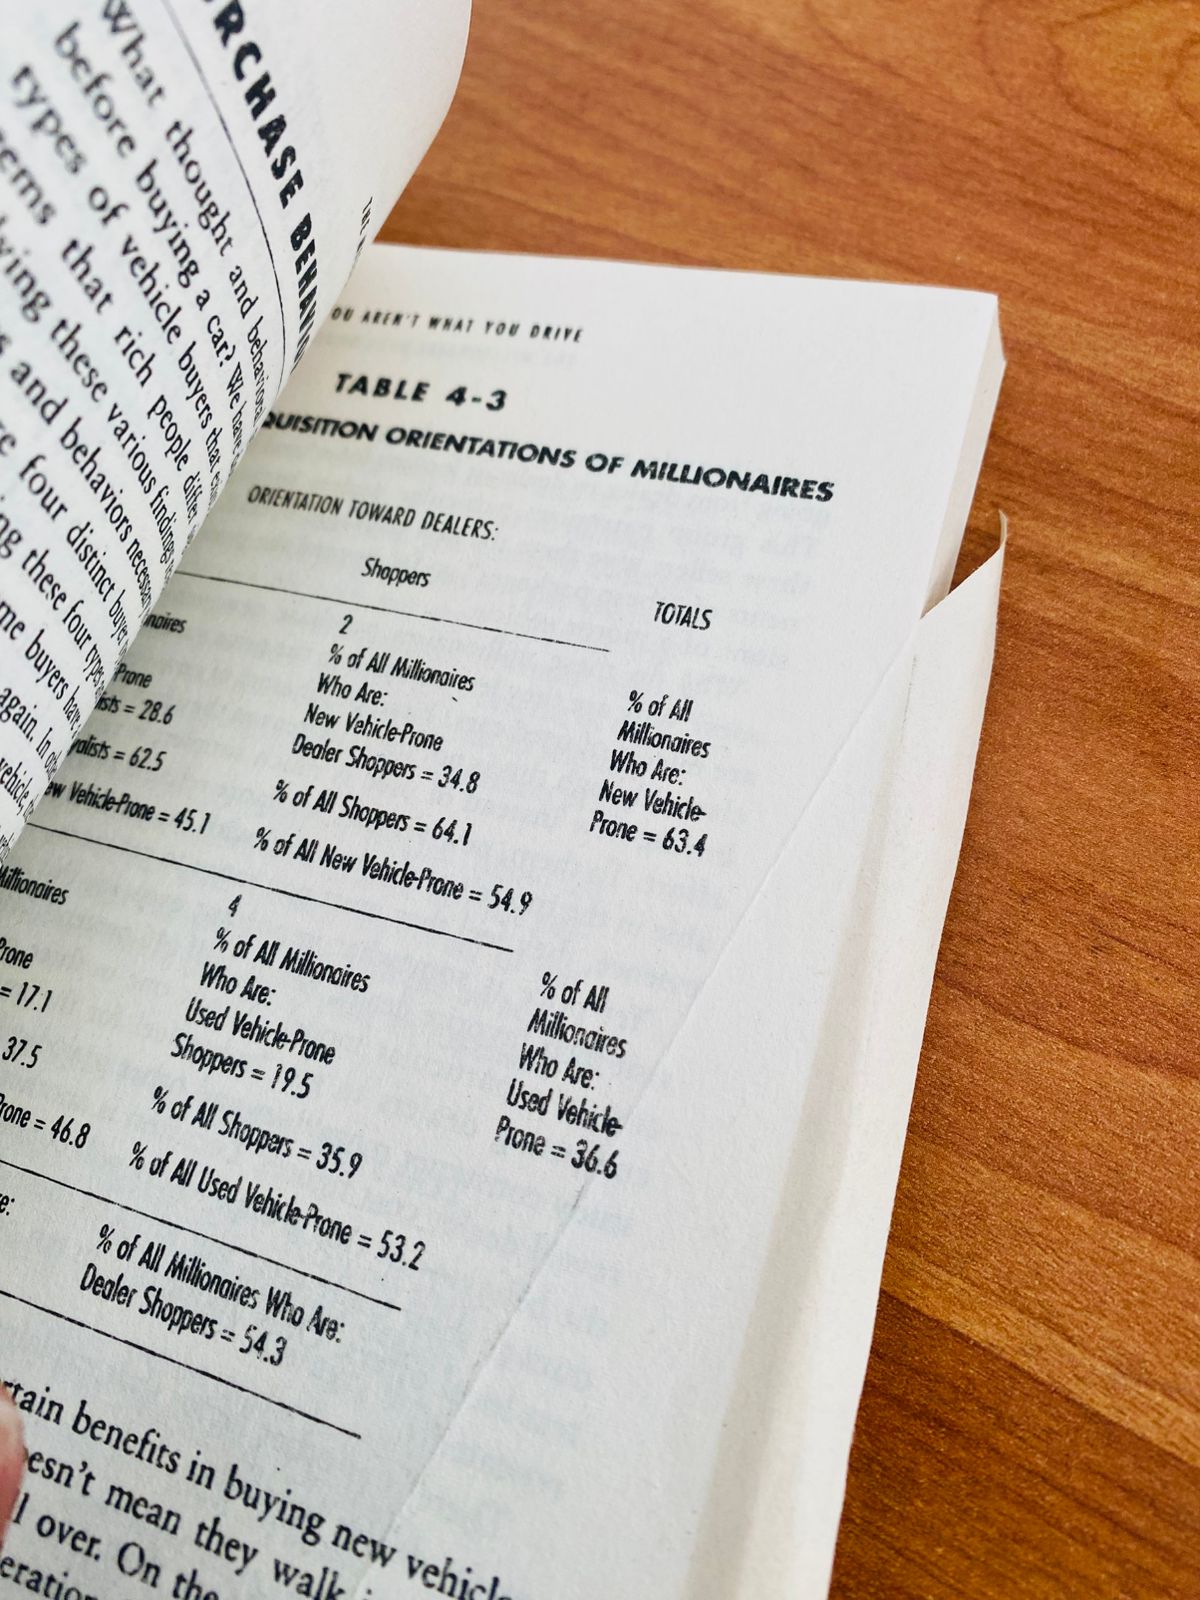 What thought and behavioral
before buying a car? We have
types of vehicle buyers that
that rich people differ
these various findings
and behaviors necessary
four distinct buyer
these four types
buyers have
again. In
OU AREN'T WHAT YOU DRIVE
TABLE 4-3
QUISITION ORIENTATIONS OF MILLIONAIRES
ORIENTATION TOWARD DEALERS:
Shoppers
TOTALS
2
% of All Millionaires
Who Are:
New Vehicle-Prone
Dealer Shoppers = 34.8
% of All Shoppers = 64.1
% of All New Vehicle-Prone = 54.9
% of All
Millionaires
Who Are:
New Vehicle-
Prone = 63.4
Prone
= 28.6
= 62.5
Vehicle-Prone = 45.1
4
% of All Millionaires
Who Are:
Used Vehicle-Prone
Shoppers = 19.5
% of All Shoppers = 35.9
% of All Used Vehicle-Prone = 53.2
% of All
Millionaires
Who Are:
Used Vehicle-
Prone = 36.6
Millionaires
Prone
= 17.1
37.5
Prone = 46.8
% of All Millionaires Who Are:
Dealer Shoppers = 54.3
benefits in buying new
mean they walk
over. On the